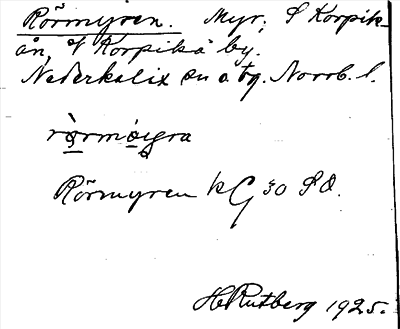 Rörmyren. Myr; S Korpik-
ån, Korpikå by.
Nederkalix sn o tg. Norrb. l.
Rörmyren kG 30 SO.
H Rutberg 1925.